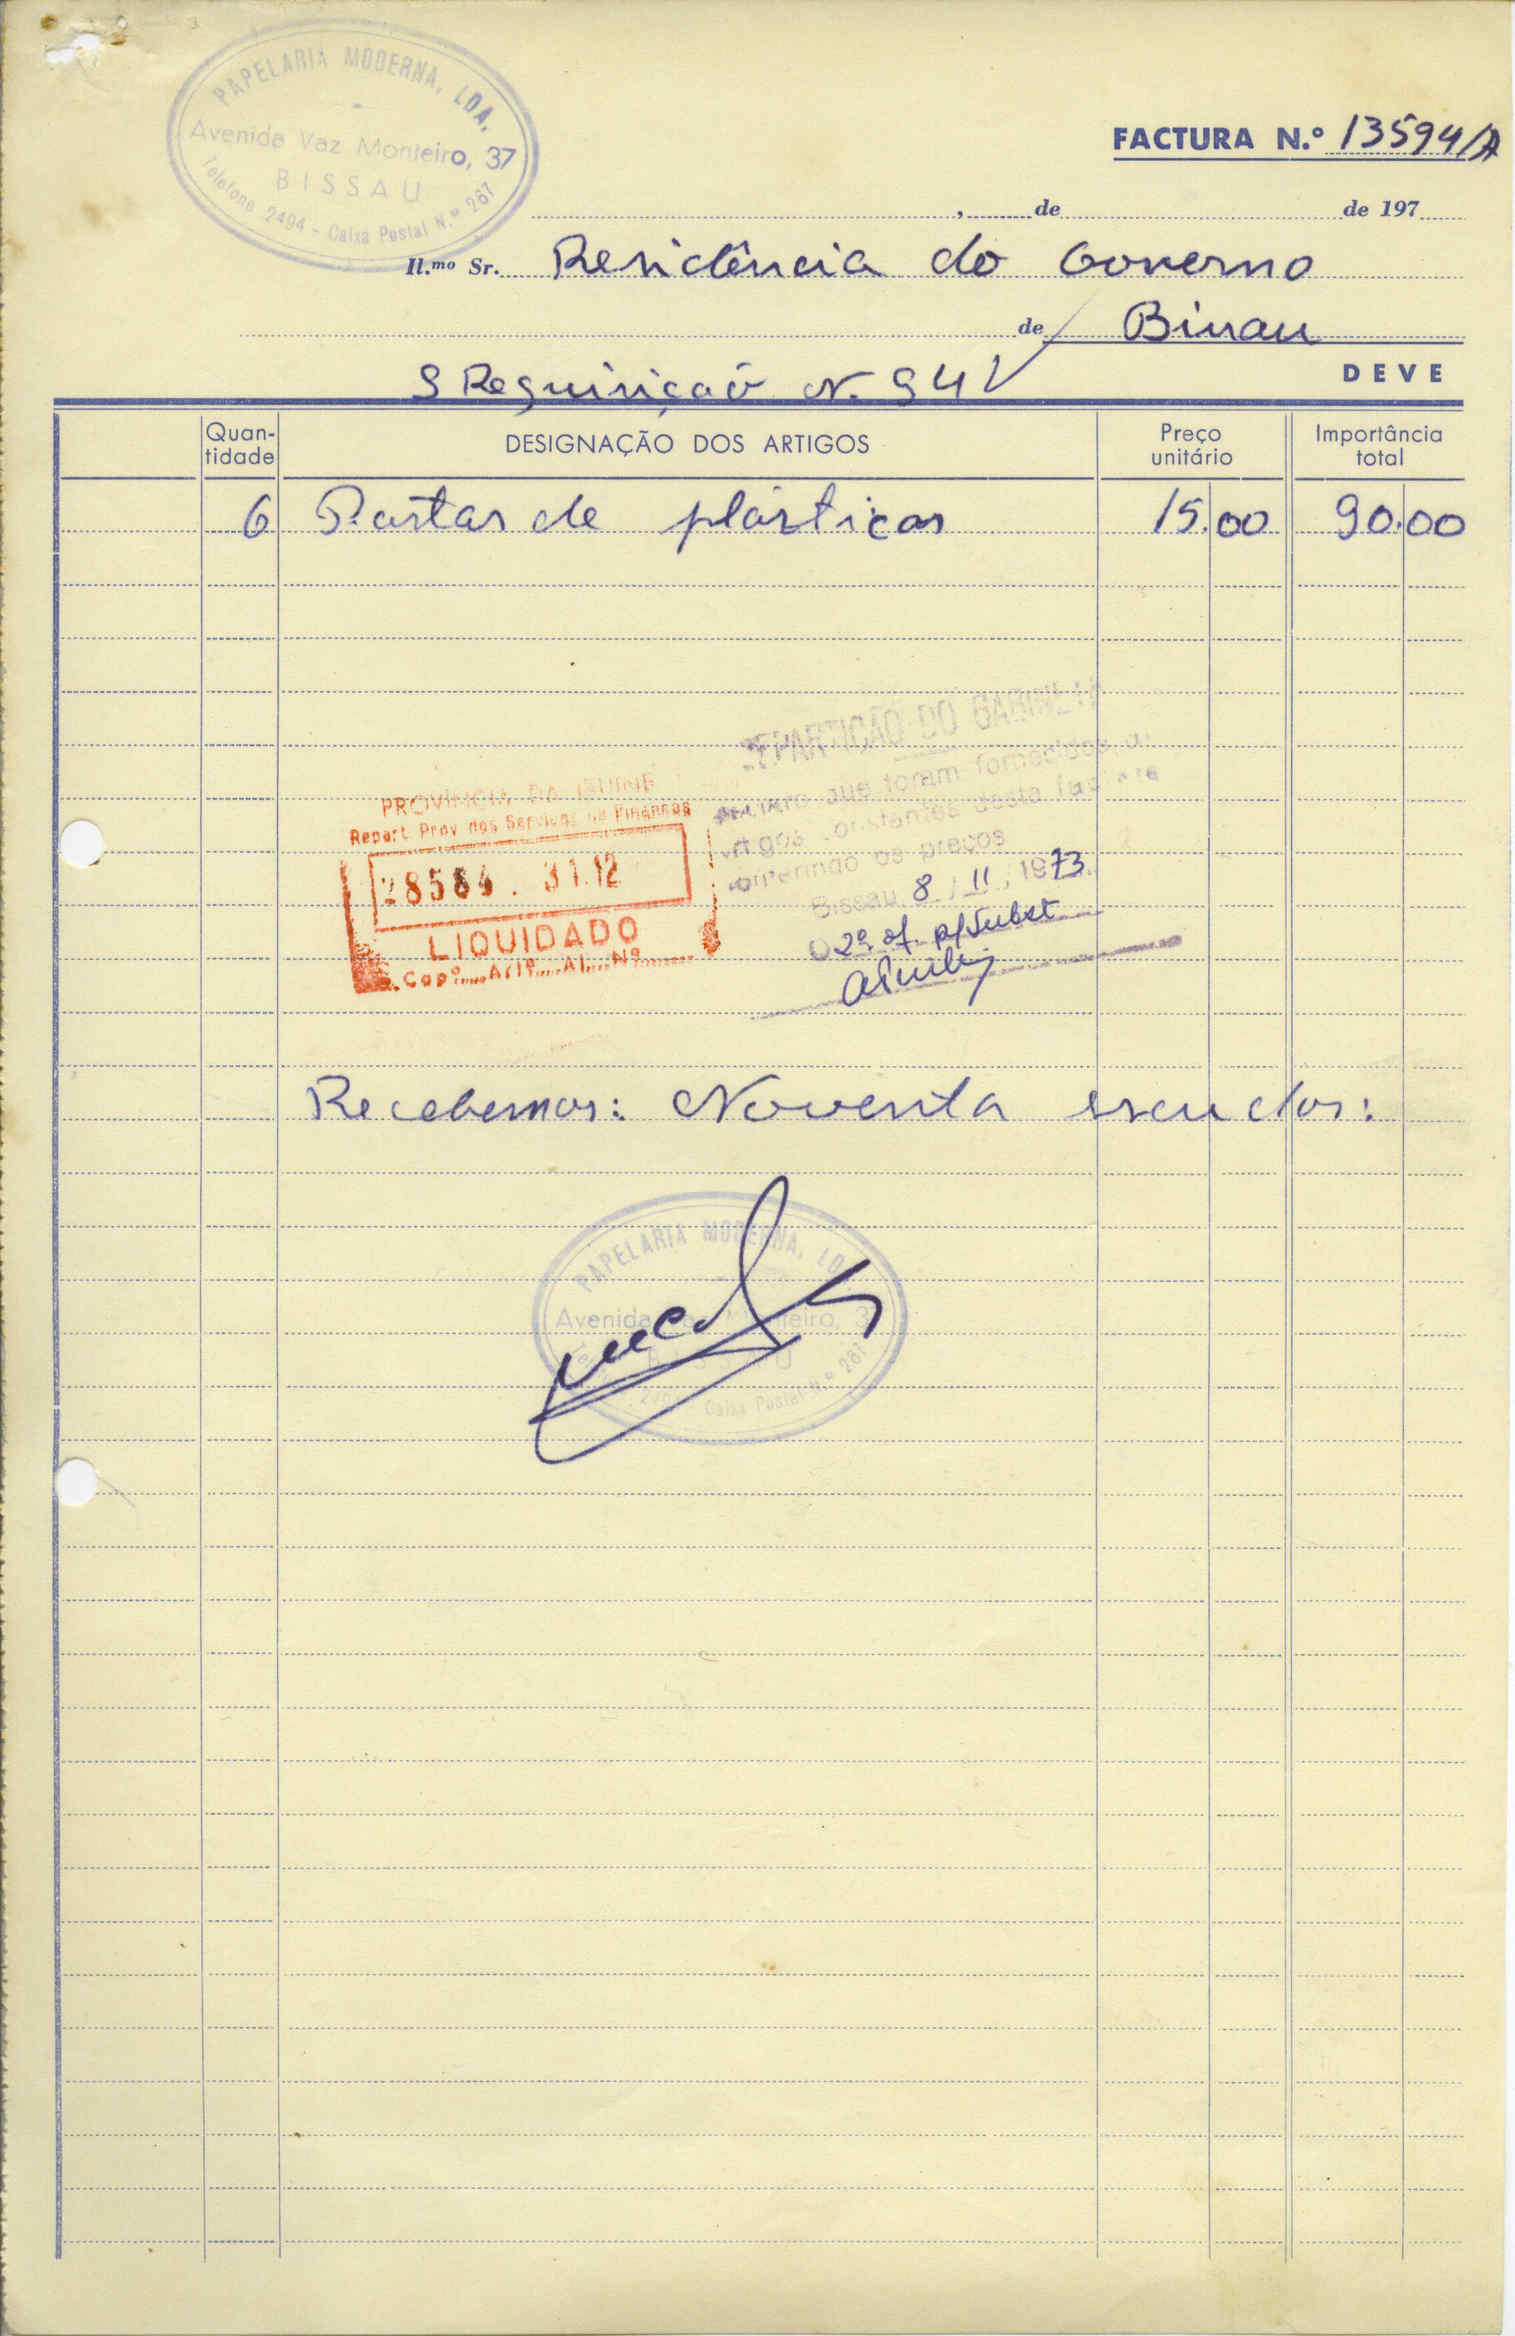 PAPELARIA MODERNA, LDA.
Avenida Vaz Monteiro, 37
BISSAU
Telefone 2494 - Caixa Postal N.º 267
FACTURA N.º 13594/A
, de de 197
Il.mo Sr. Residência do Governo
de Bissau
S Requisição N. 94
DEVE
Quan-tidade DESIGNAÇÃO DOS ARTIGOS Preço unitário Importância total
6 Pastas de plásticas 15.00 90.00
REPARTIÇÃO DO GABINETE
Declaro que foram fornecidos os
artigos constantes desta factura
conferindo os preços
Bissau 8 / 11 / 1973
O 2º of. p/subst
PROVÍNCIA DA GUINÉ
Repart. Prov. dos Serviços de Finanças
28584. 31.12
LIQUIDADO
Capº.....Artº.....Al.....Nº........
Recebemos: Noventa escudos:
PAPELARIA MODERNA, LDA
Avenida Monteiro, 3
Caixa Postal N.º 267